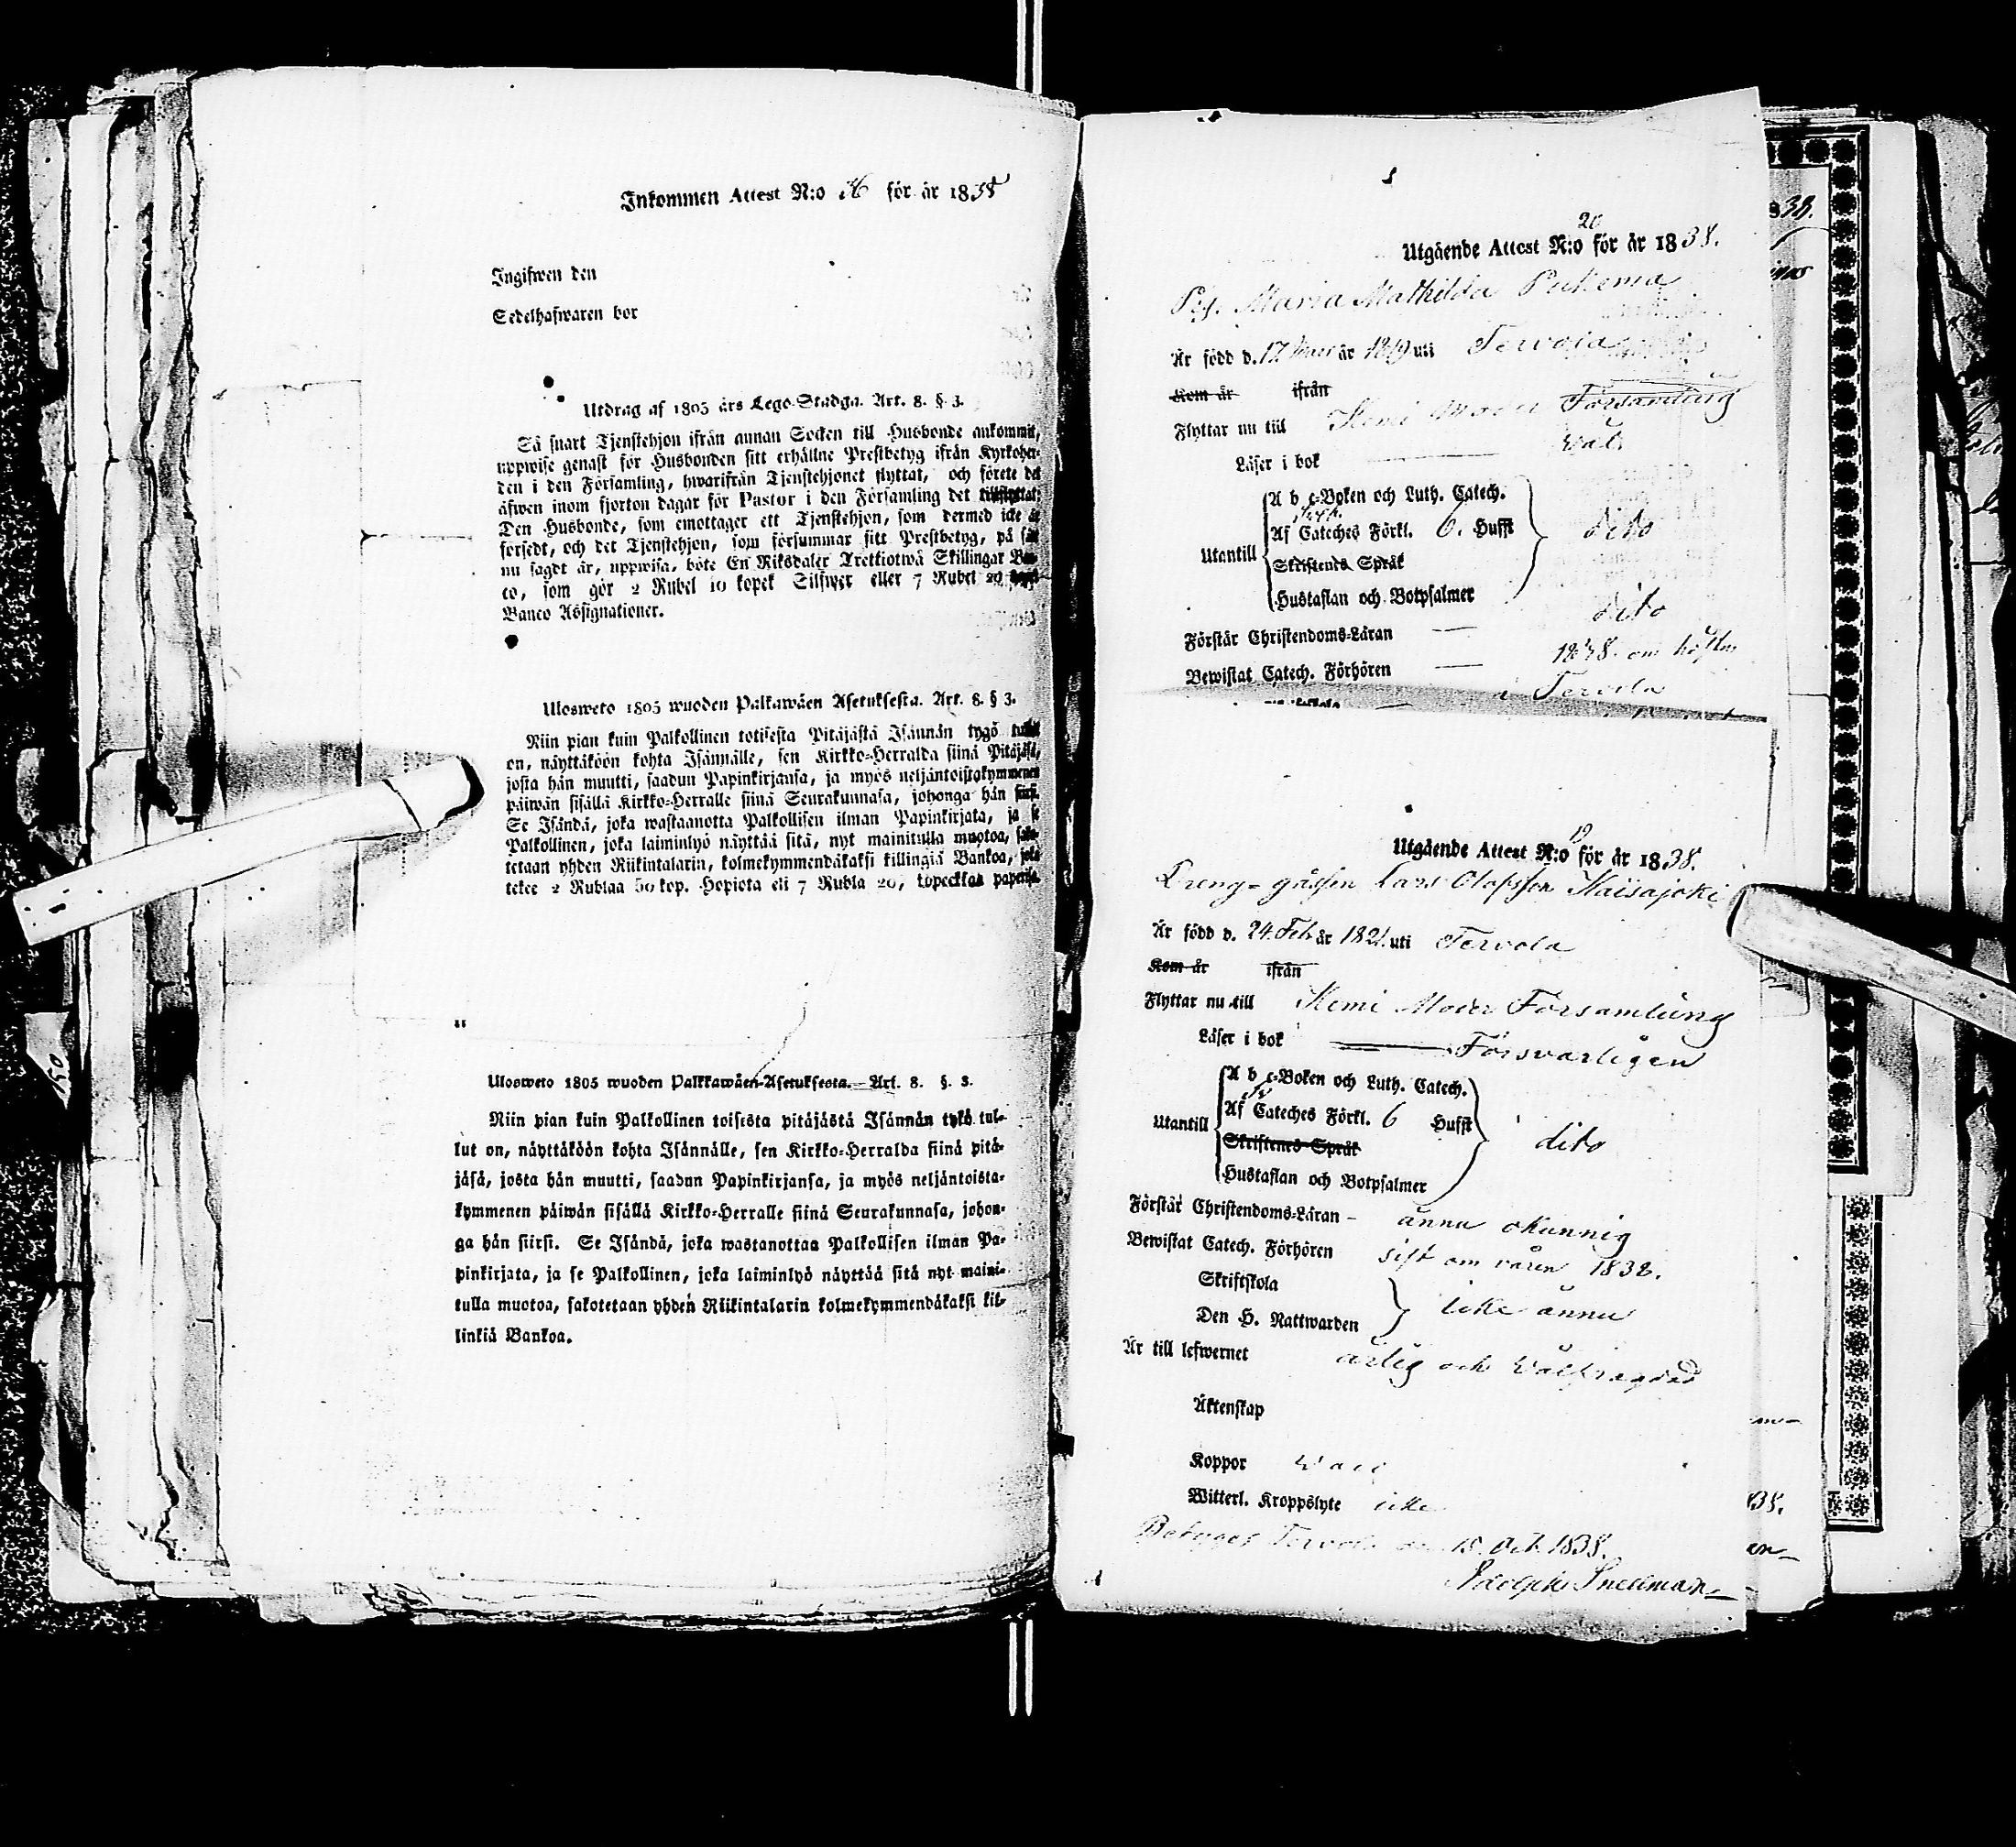 Inkommen Attest N:o för år 1838
Ingifwen den
Sedelhafwaren bor
Utdrag af 1805 års Lego-Stadga. Art. 8. § 3.
Så snart Tjenstehjon ifrån annan Socken till Husbonde ankommit,
uppwise genast för Husbonden sitt erhållne Prestbetyg ifrån Kyrkoher-
den i den Församling, hwarifrån Tjenstehjonet flyttat, och förete det
äfwen inom fjorton dagar för Pastor i den Församling det tillflyttat.
Den Husbonde, som emottager ett Tjenstehjon, som dermed icke är
försedt, och det Tjenstehjon, som försummar sitt Prestbetyg, på sätt
nu sagdt är, uppwisa, böte En Riksdaler Trettiotwå Skillingar Ban-
co, som gör 2 Rubel 10 kopek Silfwer eller 7 Rubel 20
Banco Assignationer.
Ulosweto 1805 wuoden Palkawäen Asetuksesta. Art. 8. § 3.
Niin pian kuin Palkollinen totisesta Pitäjästä Isännän tygö tullut
on, näyttäköön kohta Isännälle, sen Kirkko-Herralda siinä Pitäjäsä,
josta hän muutti, saadun Papinkirjansa, ja myös neljäntoistakymmenen
päiwän sisällä Kirkko-Herralle siinä Seurakunnasa, johonga hän siirsi.
Se Isändä, joka wastaanotta Palkollisen ilman Papinkirjata, ja se
Palkollinen, joka laiminlyö näyttää sitä, nyt mainitulla muotoa, sako-
tetaan yhden Riikintalarin, kolmekymmendäkaksi killingiä Bankoa, joka
tekee 2 Rublaa 50 kop. Hopiota eli 7 Rubla 20, kopeckkaa paperisa.
Ulosweto 1805 wuoden Palkkawäen-Asetuksesta. — Art. 8. §. 3.
Niin pian kuin Palkollinen toisesta pitäjästä Isännän tykö tul-
lut on, näyttäköön kohta Isännälle, sen Kirkko-Herralda siinä pitä-
jäsä, josta hän muutti, saadun Papinkirjansa, ja myös neljäntoista-
kymmenen päiwän sisällä Kirkko-Herralle siinä Seurakunnasa, johon-
ga hän siirsi. Se Isändä, joka wastanottaa Palkollisen ilman Pa-
pinkirjata, ja se Palkollinen, joka laiminlyö näyttää sitä nyt maini-
tulla muotoa, sakotetaan yhden Riikintalarin kolmekymmendäkaksi kil-
linkiä Bankoa.
Utgående Attest N:o 20 för år 1838.
Pig. Maria Mathilda
Är född d. 17 år 1819 uti Tervola
Kom år ifrån
Flyttar nu till Kemi Moder Församling
Läser i bok — väl
A b c-Boken och Luth. Catech.
Utantill Af Cateches Förkl. 6. Hufst dito
Skriftenes Språk
Hustaflan och Botpsalmer
Förstår Christendoms-Läran — dito
Bewistat Catech. Förhören — 1838 om hösten
i Tervola
Utgående Attest N:o 19 för år 1838.
Dreng-gossen Lars Olofsson Kaisajoki
Är född d. 24. Feb år 1821. uti Tervola
Kom år ifrån
Flyttar nu till Kemi Moder Församling
Läser i bok — Försvarligen
A b c-Boken och Luth. Catech.
Utantill Af Cateches Förkl. 6 Hufst dito
Skriftenes Språk
Hustaflan och Botpsalmer
Förstår Christendoms-Läran - ännu okunnig
Bewistat Catech. Förhören sist om våren 1838.
Skriftskola
Den H. Nattwarden icke ännu
Är till lefwernet ärlig och välfrägdad
Äktenskap
Koppor
Witterl. Kroppslyte icke
Betygas Tervola den 18. Oct. 1838.
Adolph Snellman
150